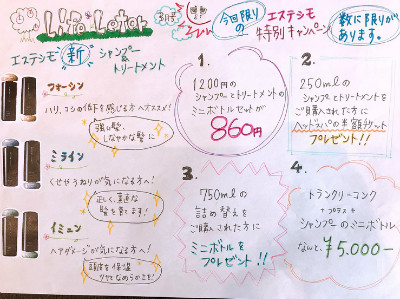 Life Letter
3月号
今回限りの
エステシモ
特別キャンペーン
数に限りが
あります。
エステシモ 新 シャンプー
&
トリートメント
フォーシン
ハリ、コシの低下を感じる方へススメ!
強い髪、
しなやかな髪に
ミライン
くせやうねりが気になる方へ!
正しく、素直な
髪を育てます!
イミュン
ヘアダメージが気になる方へ!
頭皮を保湿
ツヤとなめらかさを!
1.
1200円の
シャンプーとトリートメントの
ミニボトルセットが
860円
2.
250mlの
シャンプーとトリートメントを
ご購入された方に
ヘッドスパの半額チケット
プレゼント!!
3.
750mlの
詰め替えを
ご購入された方に
ミニボトルを
プレゼント!!
4.
トランクリーコンク
+ プラス +
シャンプーのミニボトル
なんと、¥5.000-